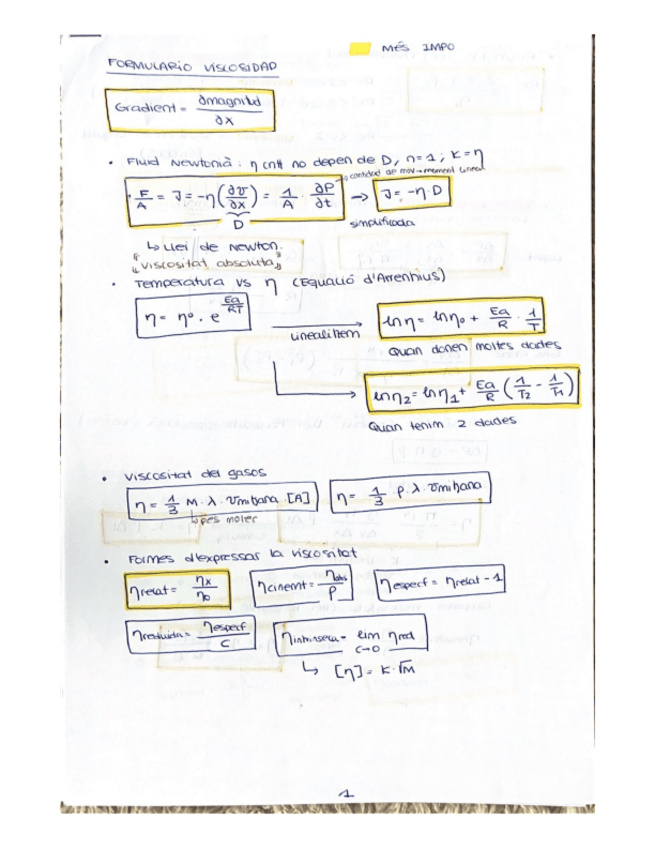 MÉS IMPO
FORMULARIO VISCOSIDAD
Gradient = ∂magnitud / ∂x
• Fluid Newtonià: η cnt no depen de D, n=1; K=η
→ cantidad de mov → moment lineal
F/A = J = -η(∂v/∂x) = 1/A · ∂P/∂t → J = -η·D
D
simplificada
↳ Llei de newton.
"viscositat absoluta"
• Temperatura vs η (Equació d'Arrenhius)
η = η° · e^(Ea/RT)
linealitzem
lnη = lnη₀ + Ea/R · 1/T
Quan donen moltes dades
lnη₂ = lnη₁ + Ea/R (1/T₂ - 1/T₁)
Quan tenim 2 dades
• Viscositat del gasos
η = 1/3 M · λ · vmitjana · [A]
η = 1/3 · ρ · λ · vmitjana
↳ pes molar
• Formes d'expressar la viscositat
ηrelat = ηx/η₀
ηcinemt = ηabs/ρ
ηespecf = ηrelat - 1
ηreduida = ηespecf/C
ηintrinseca = lim C→0 ηred
↳ [η] = K·√M
1